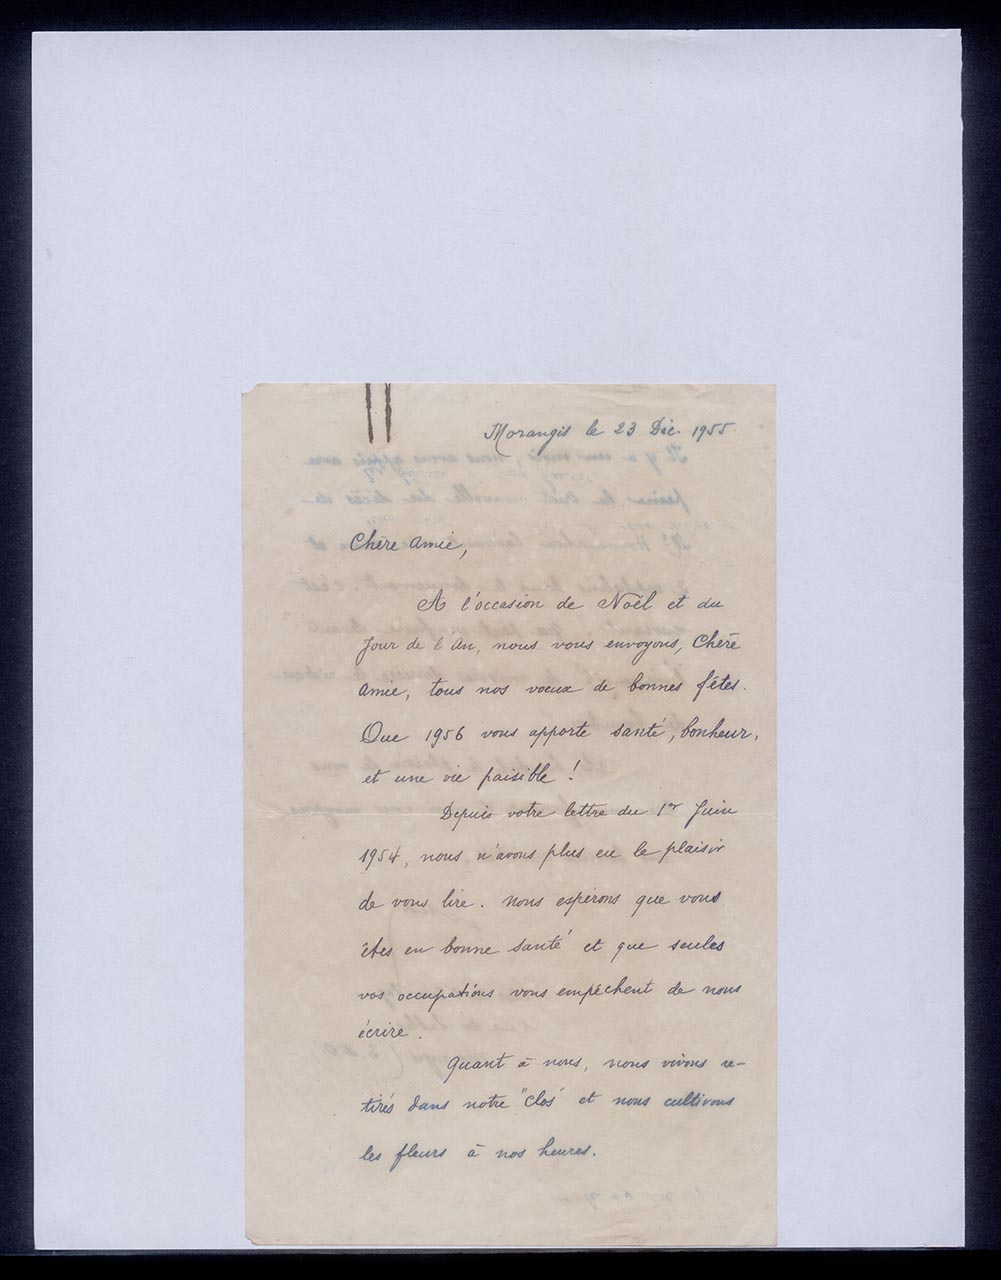 Morangis le 23 Déc. 1955.
Chère Amie,
A l'occasion de Noël et du
Jour de l'An, nous vous envoyons, Chère
Amie, tous nos voeux de bonnes fêtes.
Que 1956 vous apporte santé, bonheur,
et une vie paisible !
Depuis votre lettre du 1er Juin
1954, nous n'avons plus eu le plaisir
de vous lire. Nous espérons que vous
êtes en bonne santé et que seules
vos occupations vous empêchent de nous
écrire.
Quant à nous, nous vivons re-
tirés dans notre "clos" et nous cultivons
les fleurs à nos heures.